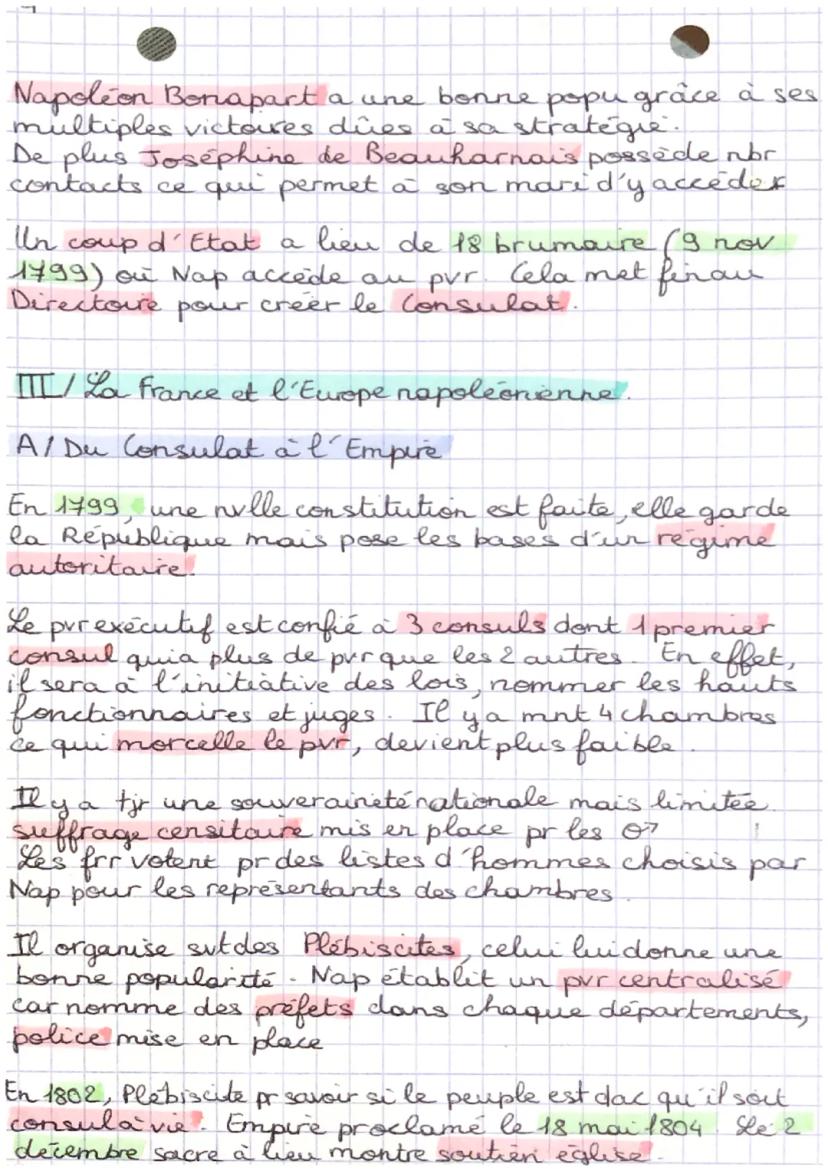 Napoléon Bonapart a une bonne popu grâce à ses
multiples victoires dûes à sa stratégie.
De plus Joséphine de Beauharnais possède nbr
contacts ce qui permet à son mari d'y accéder
Un coup d'Etat a lieu de 18 brumaire (9 nov
1799) où Nap accède au pvr. Cela met fin au
Directoire pour créer le Consulat.
III/ La France et l'Europe napoléonienne.
A/ Du Consulat à l'Empire
En 1799, une nvlle constitution est faite, elle garde
la République mais pose les bases d'un régime
autoritaire.
Le pvr exécutif est confié à 3 consuls dont 1 premier
consul qui a plus de pvr que les 2 autres. En effet,
il sera à l'initiative des lois, nommer les hauts
fonctionnaires et juges. Il y a mnt 4 chambres
ce qui morcelle le pvr, devient plus faible.
Il y a tjr une souveraineté nationale mais limitée.
suffrage censitaire mis en place pr les ♂
Les frr votent pr des listes d'hommes choisis par
Nap pour les représentants des chambres.
Il organise svt des Plébiscites, celui lui donne une
bonne popularité. Nap établit un pvr centralisé
car nomme des préfets dans chaque départements,
police mise en place
En 1802, Plébiscite pr savoir si le peuple est dac qu'il soit
consul à vie. Empire proclamé le 18 mai 1804. Le 2
décembre sacre à lieu montre soutien église.